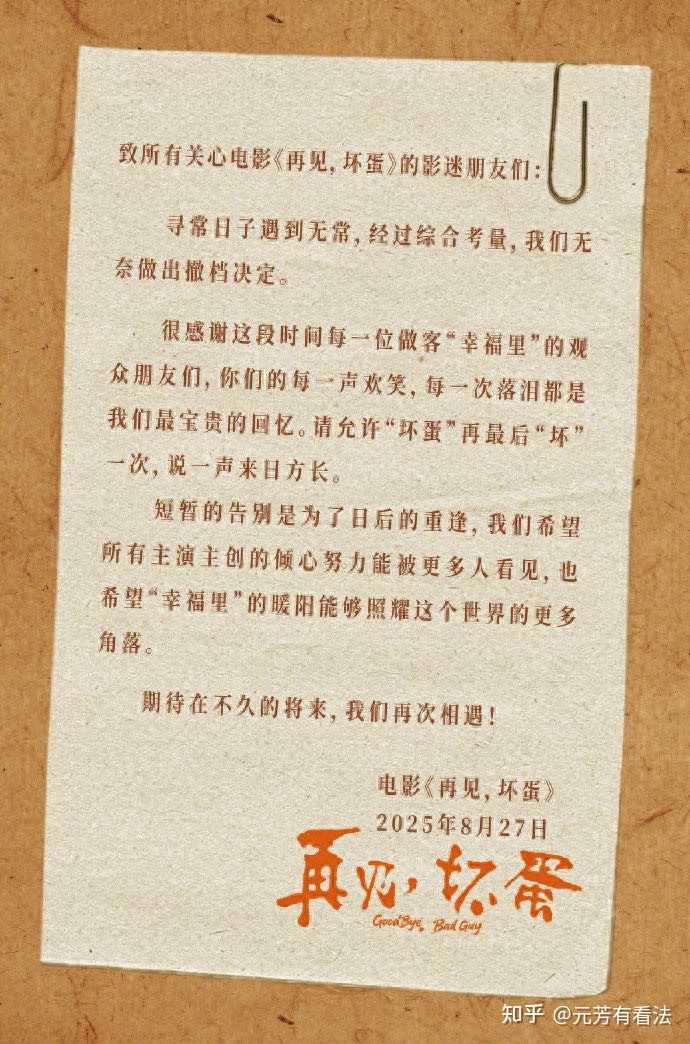 致所有关心电影《再见,坏蛋》的影迷朋友们:
寻常日子遇到无常,经过综合考量,我们无
奈做出撤档决定。
很感谢这段时间每一位做客“幸福里”的观
众朋友们,你们的每一声欢笑,每一次落泪都是
我们最宝贵的回忆。请允许“坏蛋”再最后“坏”
一次,说一声来日方长。
短暂的告别是为了日后的重逢,我们希望
所有主演主创的倾心努力能被更多人看见,也
希望“幸福里”的暖阳能够照耀这个世界的更多
角落。
期待在不久的将来,我们再次相遇!
电影《再见,坏蛋》
2025年8月27日
再见,坏蛋
GoodBye, Bad Guy
知乎 @元芳有看法